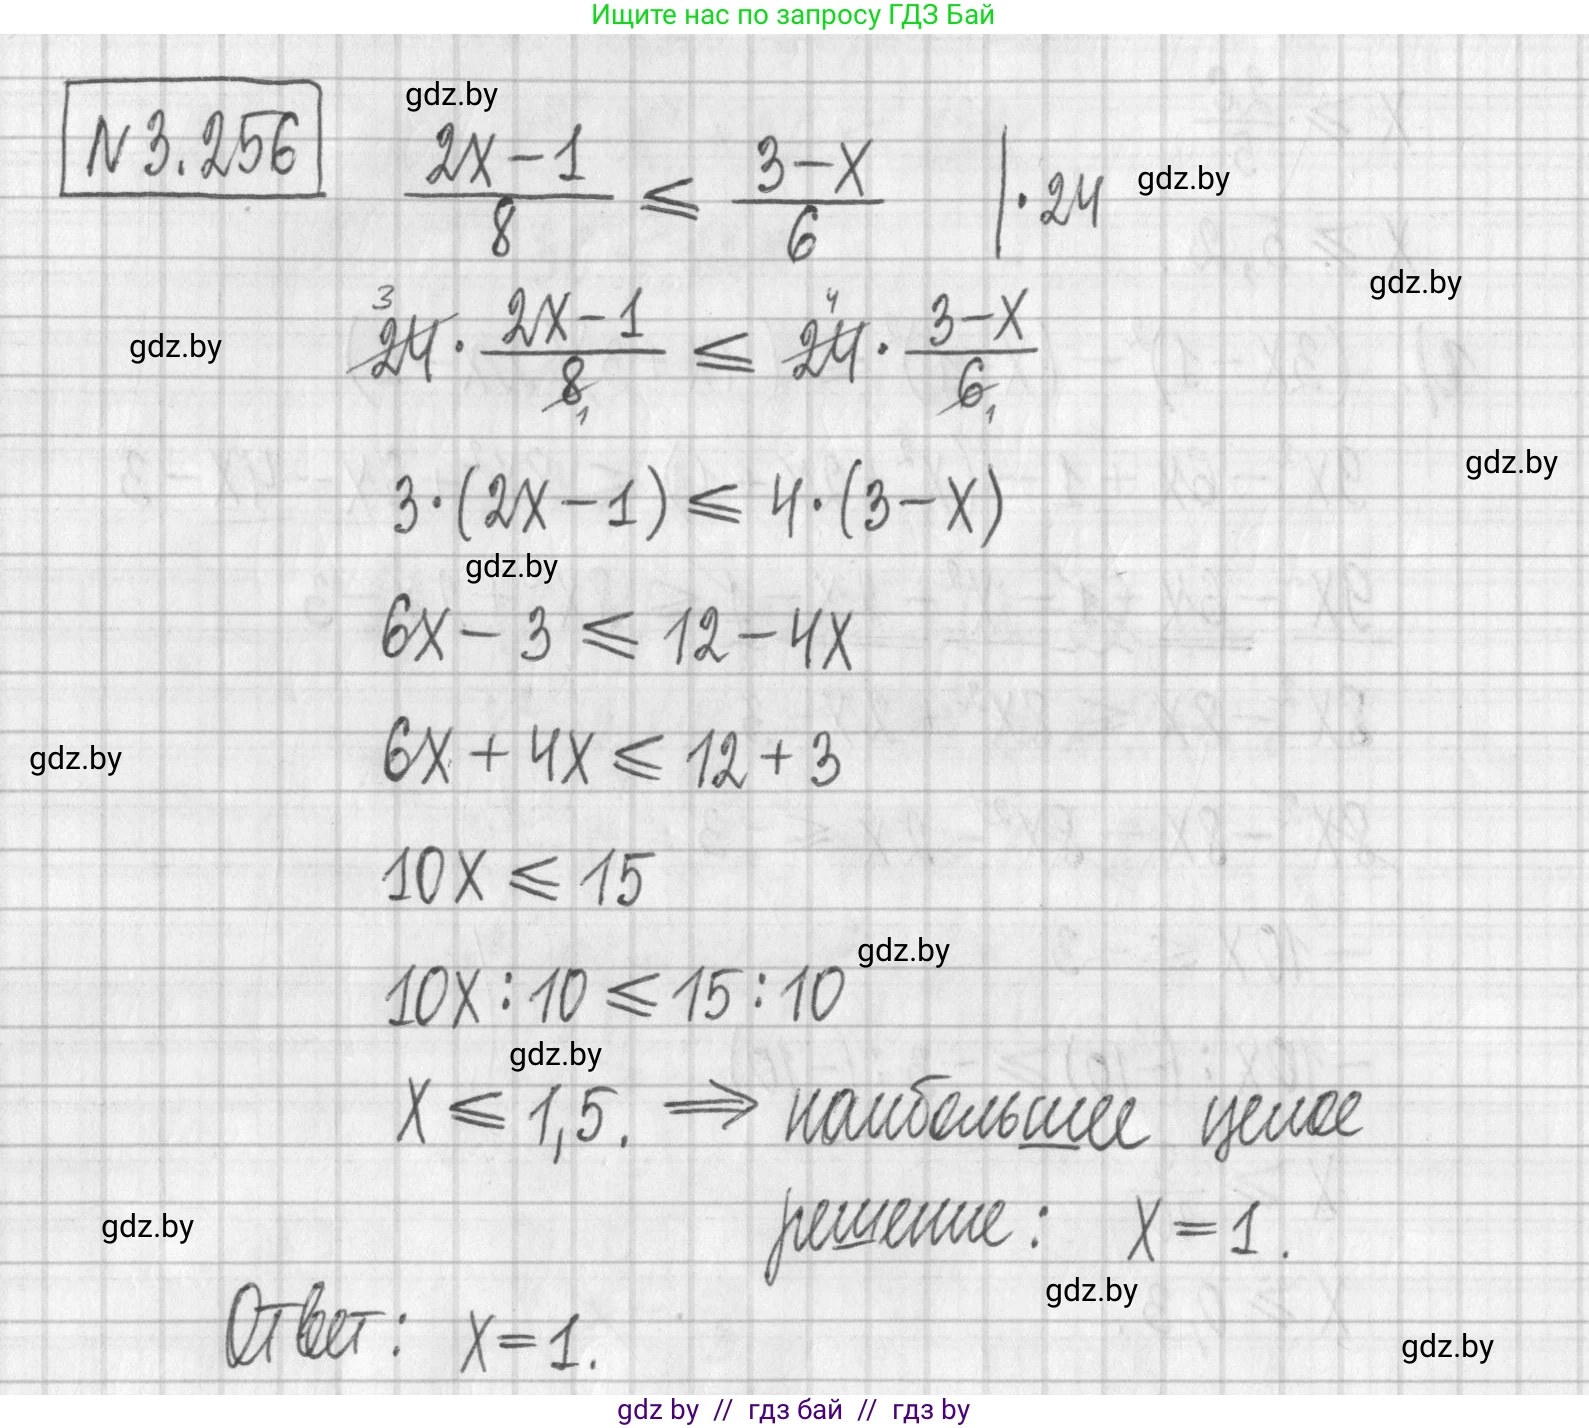 Ищите нас по запросу ГДЗ Бай
gdz.by
N 3.256
2x-1/8 ⩽ 3-x/6 | · 24
gdz.by
gdz.by
gdz.by
3 4
24 · 2x-1/8 ⩽ 24 · 3-x/6
1 1
gdz.by
3·(2x-1) ⩽ 4·(3-x)
gdz.by
6x - 3 ⩽ 12 - 4x
6x + 4x ⩽ 12 + 3
gdz.by
10x ⩽ 15
gdz.by
10x : 10 ⩽ 15 : 10
gdz.by
x ⩽ 1,5. ⇒ наибольшее целое
решение: x = 1.
gdz.by
gdz.by
Ответ: x = 1.
gdz.by
gdz by // гдз бай // гдз by